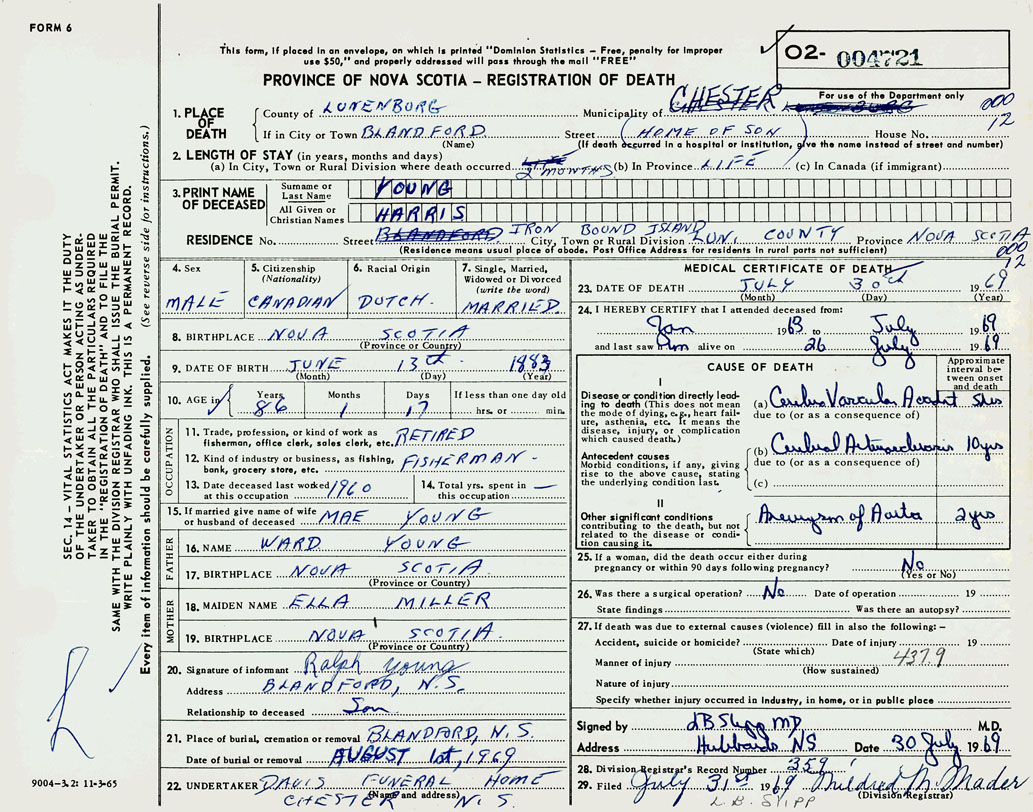 FORM 6
This form, if placed in an envelope, on which is printed "Dominion Statistics – Free, penalty for improper
use $50," and properly addressed will pass through the mail "FREE"
PROVINCE OF NOVA SCOTIA – REGISTRATION OF DEATH
02- 004721
For use of the Department only
000
12
1. PLACE OF DEATH
County of LUNENBURG Municipality of CHESTER
If in City or Town BLANDFORD Street (HOME OF SON) House No.
(Name) (If death occurred in a hospital or institution, give the name instead of street and number)
2. LENGTH OF STAY (in years, months and days)
(a) In City, Town or Rural Division where death occurred 2 MONTHS (b) In Province LIFE (c) In Canada (if immigrant)
3. PRINT NAME OF DECEASED
Surname or Last Name YOUNG
All Given or Christian Names HARRIS
RESIDENCE No. Street BLANDFORD IRON BOUND ISLAND City, Town or Rural Division LUN. COUNTY Province NOVA SCOTIA
(Residence means usual place of abode. Post Office Address for residents in rural parts not sufficient)
000
12
4. Sex MALE
5. Citizenship (Nationality) CANADIAN
6. Racial Origin DUTCH.
7. Single, Married, Widowed or Divorced (write the word) MARRIED.
8. BIRTHPLACE NOVA SCOTIA
(Province or Country)
9. DATE OF BIRTH JUNE 13th 1883
(Month) (Day) (Year)
10. AGE in Years 86 Months 1 Days 17 If less than one day old hrs. or min.
OCCUPATION
11. Trade, profession, or kind of work as fisherman, office clerk, sales clerk, etc. RETIRED
12. Kind of industry or business, as fishing, bank, grocery store, etc. FISHERMAN -
13. Date deceased last worked at this occupation 1960
14. Total yrs. spent in this occupation —
15. If married give name of wife or husband of deceased MAE YOUNG
FATHER
16. NAME WARD YOUNG
17. BIRTHPLACE NOVA SCOTIA.
(Province or Country)
MOTHER
18. MAIDEN NAME ELLA MILLER
19. BIRTHPLACE NOVA SCOTIA.
(Province or Country)
20. Signature of informant Ralph Young
Address BLANDFORD, N.S.
Relationship to deceased Son
21. Place of burial, cremation or removal BLANDFORD, N.S.
Date of burial or removal AUGUST 1st, 1969
22. UNDERTAKER DAVIS FUNERAL HOME
(Name and address)
CHESTER N.S.
MEDICAL CERTIFICATE OF DEATH
23. DATE OF DEATH JULY 30th 1969
(Month) (Day) (Year)
24. I HEREBY CERTIFY that I attended deceased from:
Jan 1963 to July 1969
and last saw him alive on 26 July 1969
CAUSE OF DEATH
Approximate interval between onset and death
I
Disease or condition directly leading to death (This does not mean the mode of dying, e.g., heart failure, asthenia, etc. It means the disease, injury, or complication which caused death.)
(a) Cerebro Vascular Accident
due to (or as a consequence of)
Antecedent causes
Morbid conditions, if any, giving rise to the above cause, stating the underlying condition last.
(b) Cerebral Arteriosclerosis 10 yrs
due to (or as a consequence of)
(c)
II
Other significant conditions contributing to the death, but not related to the disease or condition causing it.
Aneurysm of Aorta 2 yrs
25. If a woman, did the death occur either during pregnancy or within 90 days following pregnancy? No
(Yes or No)
26. Was there a surgical operation? No Date of operation 19
State findings Was there an autopsy?
27. If death was due to external causes (violence) fill in also the following: –
Accident, suicide or homicide? Date of injury 19
(State which)
Manner of injury 437.9
(How sustained)
Nature of injury
Specify whether injury occurred in Industry, in home, or in public place
Signed by LB Slipp MD M.D.
Address Hubbards NS Date 30 July 1969
28. Division Registrar's Record Number 359
29. Filed July 31st 1969 Mildred M. Mader
(Division Registrar)
L.B. SLIPP
SEC. 14 – VITAL STATISTICS ACT MAKES IT THE DUTY
OF THE UNDERTAKER OR PERSON ACTING AS UNDER-
TAKER TO OBTAIN ALL THE PARTICULARS REQUIRED
IN THE "REGISTRATION OF DEATH" AND TO FILE THE
SAME WITH THE DIVISION REGISTRAR WHO SHALL ISSUE THE BURIAL PERMIT.
WRITE PLAINLY WITH UNFADING INK. THIS IS A PERMANENT RECORD.
Every item of information should be carefully supplied. (See reverse side for instructions.)
9004–3.2: 11-3-65